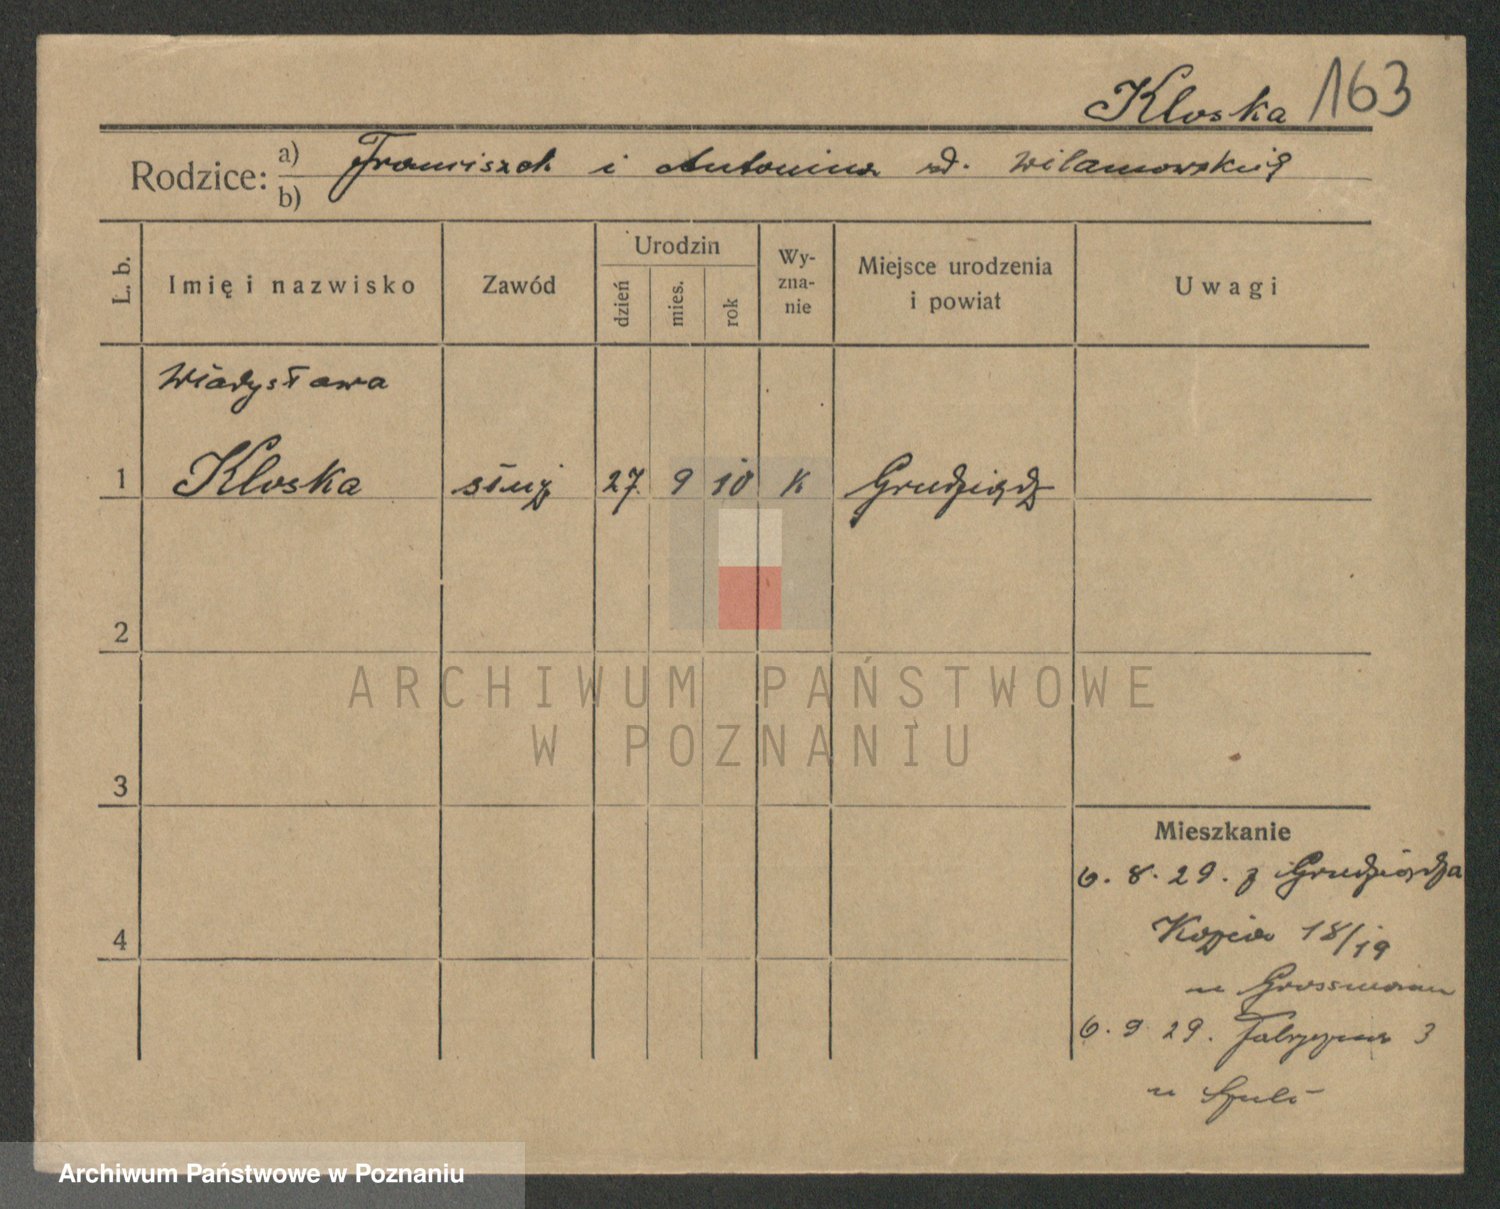 Kloska 163
Rodzice: a) Franciszek i Antonina zd. Wilamowskią
b)
L. b.
Imię i nazwisko
Zawód
Urodzin
dzień
mies.
rok
Wy-
zna-
nie
Miejsce urodzenia
i powiat
Uwagi
Władysława
1 Kloska służ 27 9 10 k Grudziądz
2
ARCHIWUM PAŃSTWOWE
W POZNANIU
3
Mieszkanie
6. 8. 29. z Grudziądza
4
18/19
u Grossmann
6. 9 29. Fabryczna 3
u
Archiwum Państwowe w Poznaniu